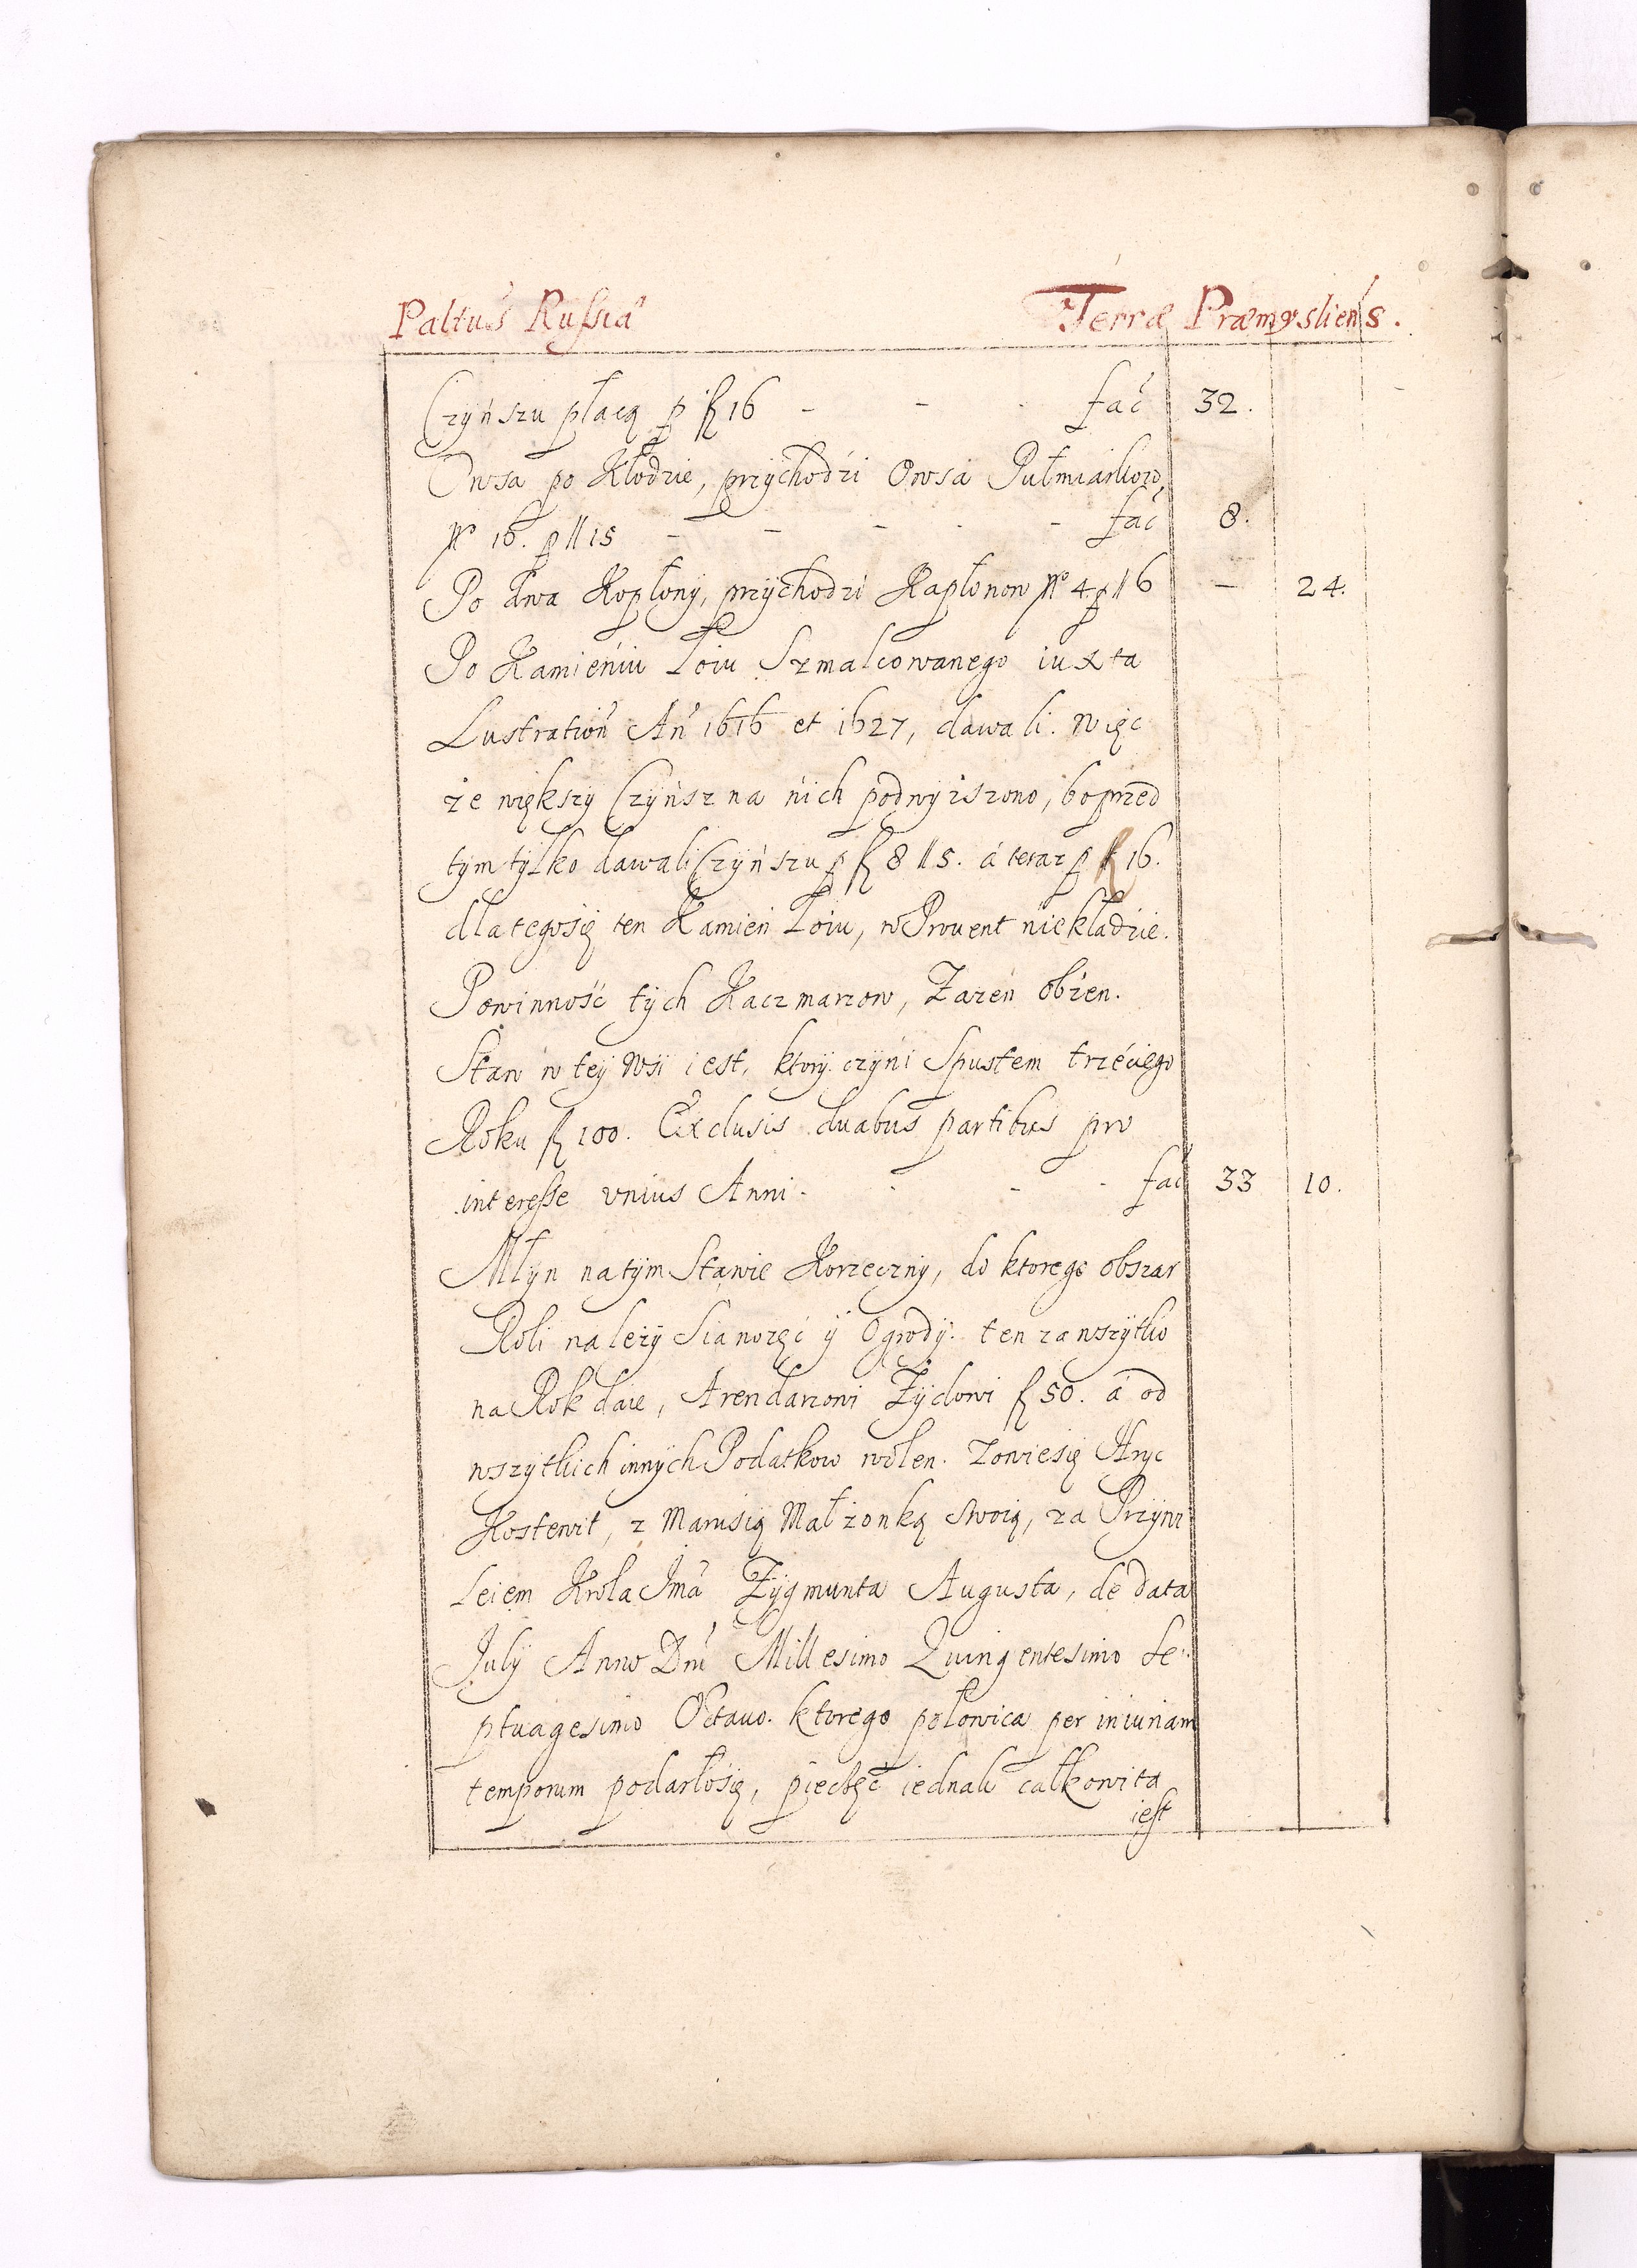 Paltus Russiæ Terræ Præmysliens.
Czynszu płacą p fl 16 - - - fac 32.
Owsa po Kłodzie, przychodzi Owsa Pułmiarkow,
No 16. p ll 15 - - - - - fac 8.
Po dwa Kopłony, przychodzi Kapłonow No 4. p ll 6 — 24.
Po Kamieniu Łoiu Szmalcowanego iuxta
Lustration An 1616 et 1627, dawali. Więc
że większy Czynsz na nich podwyższono, bo przed
tym tylko dawali Czynszu p fl 8 ll 5. á teraz p fl 16.
dla tego się ten Kamien Łoiu, w Prouent niekładzie.
Powinność tych Kaczmarzow, Zazen obżen.
Staw w tey Wsi iest, ktory czyni Spustem trzeciego
Roku fl 100. Exclusis duabus partibus pro
interesse vnius Anni. - - - fac 33 10.
Młyn na tym Stawie Korzeczny, do ktorego obszar
Roli należy Sianożęć y Ogrody. ten za wszytko
na Rok daie, Arendarzowi Żydowi fl 50. á od
wszytkich innych Podatkow wolen. Zowie się Hryc
Kostewit, z Marusią Małżonką swoią, za Przywi
leiem Krola Jmci Zygmunta Augusta, de data
July Anno Dni Millesimo Quingentesimo Se-
ptuagesimo Octauo. ktorego połowica per iniuriam
temporum podarłosię, pieczęć iednak całkowita
iest